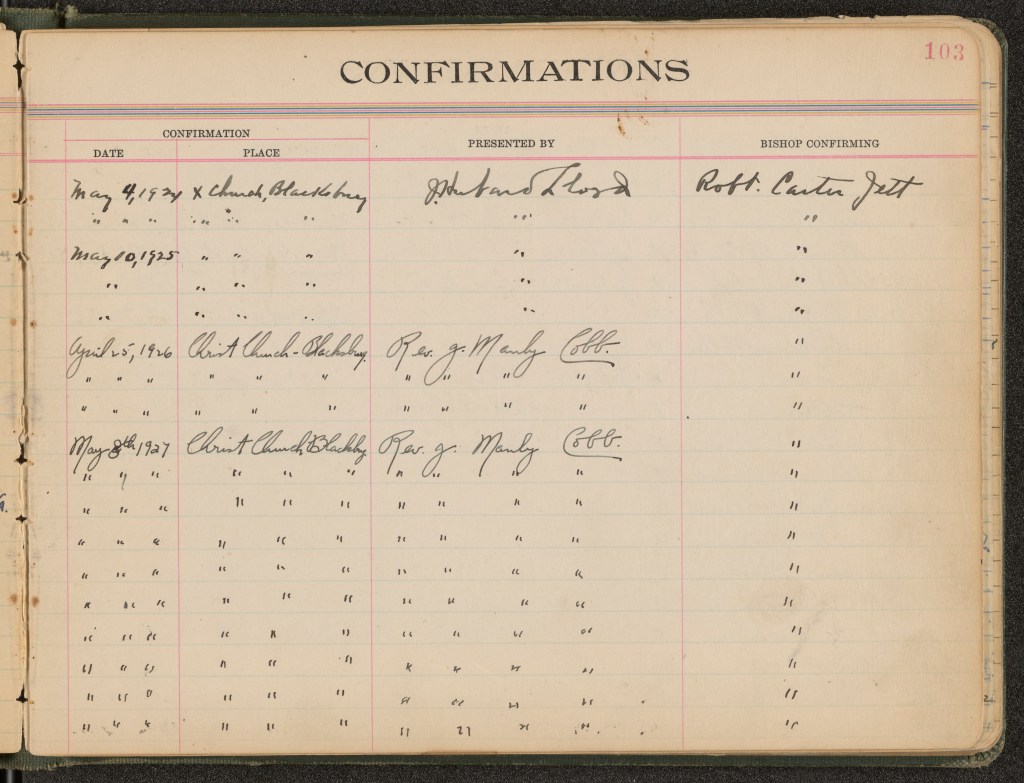 103
CONFIRMATIONS
CONFIRMATION
DATE PLACE PRESENTED BY BISHOP CONFIRMING
May 4, 1924 X Church, Blacksburg J. Hubard Lloyd Robt. Carter Jett
" " " " " " " "
May 10, 1925 " " " " "
" " " " " "
" " " " " "
April 25, 1926 Christ Church - Blacksburg. Rev. J. Manly Cobb. "
" " " " " " " " " " "
" " " " " " " " " " "
May 8th, 1927 Christ Church, Blacksbg Rev. J. Manly Cobb. "
" " " " " " " " " " "
" " " " " " " " " " "
" " " " " " " " " " "
" " " " " " " " " " "
" " " " " " " " " " "
" " " " " " " " " " "
" " " " " " " " " " "
" " " " " " " " " " "
" " " " " " " " " " "